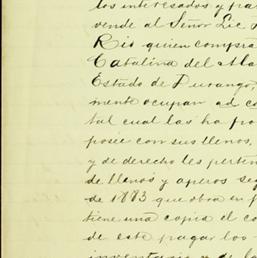 los interesados y par
vende al Señor Lic
Rio quien compra
Catalina del Ala
Estado de Durango,
mente ocupan ad co
tal cual las ha po
posee con sus llenos,
y de derecho les perten
de llenos y aperos seg
de 1883 que obra en p
tiene una copia el co
de este pagar los
inventario y de la